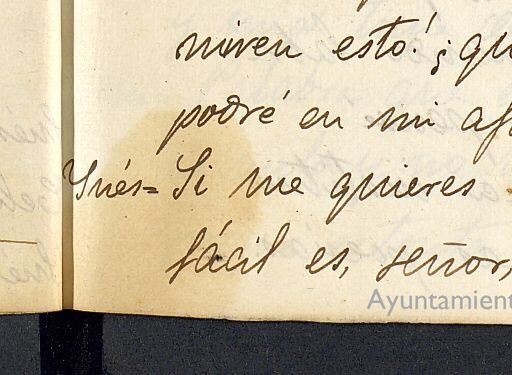 miren esto! ¡ qu
podré en mi af
Ynés = Si me quieres
fácil es, señor,
Ayuntamient